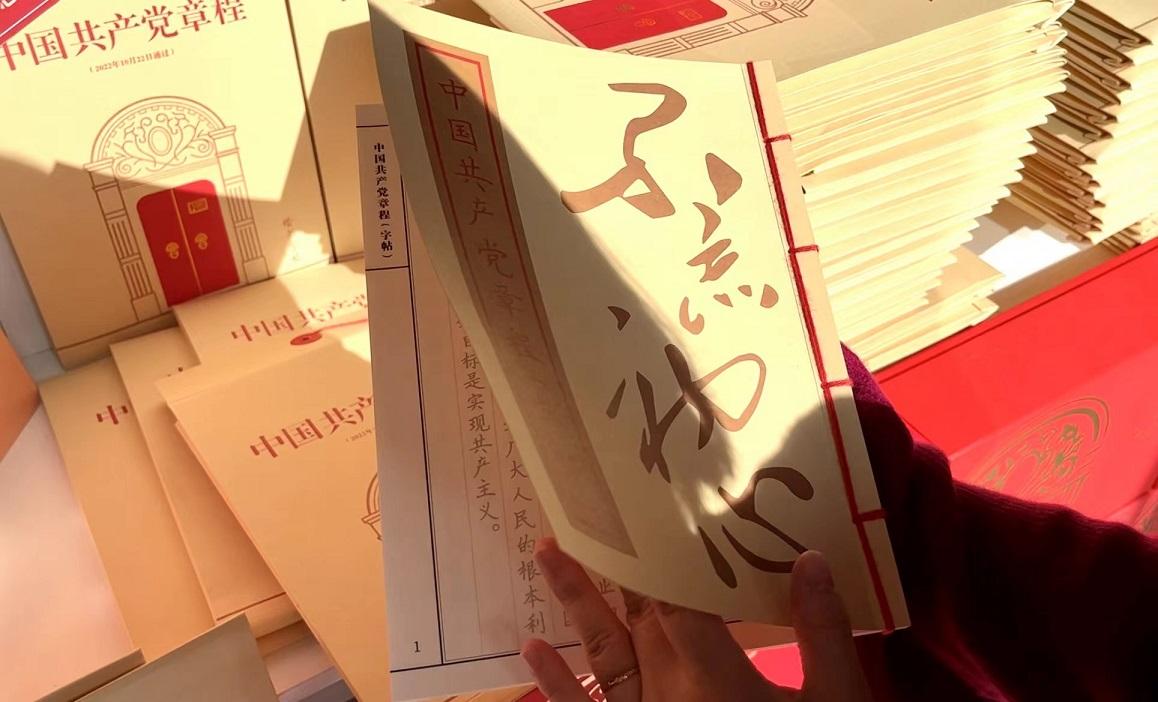 中国共产党章程
（2022年10月22日通过）
不忘初心
中国共产党章程
中国共产党章程（字帖）
大人民的根本利
目标是实现共产主义。
1
中国共产
中
中国共产